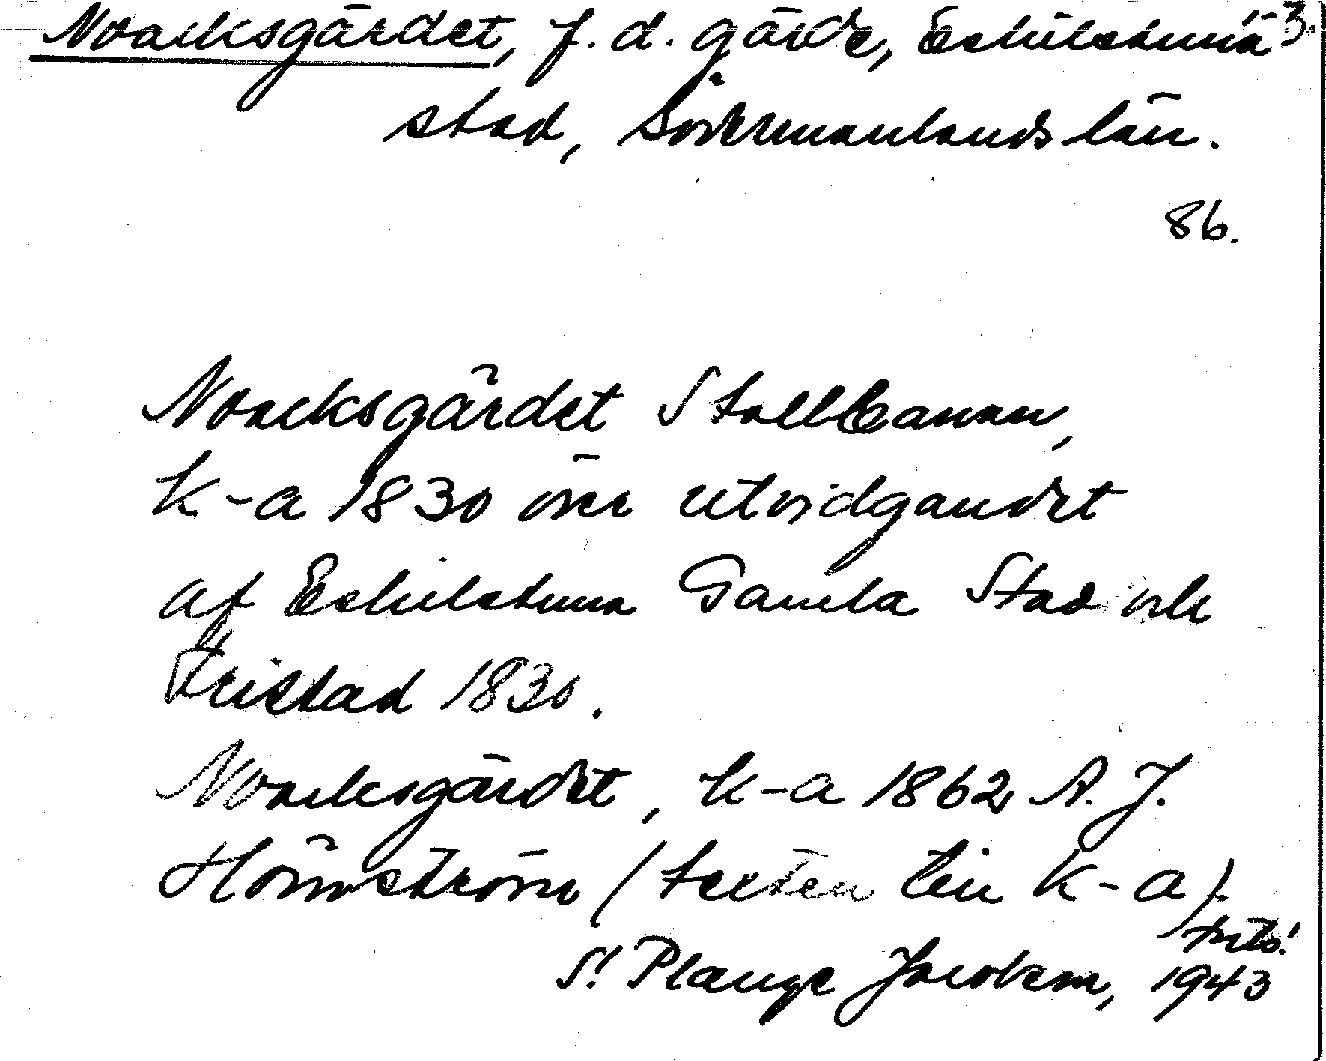 Noacksgärdet, f.d. gärde, Eskilstuna 3.
stad, Södermanlands län.
86.
Noacksgärdet Stallbacken,
k-a 1830 över utvidgandet
af Eskilstuna Gamla Stad och
Fristad 1830.
Noacksgärdet, k-a 1862 A. J.
Hörnström (texten till k-a).
S. Plauge Jacobson, 1943